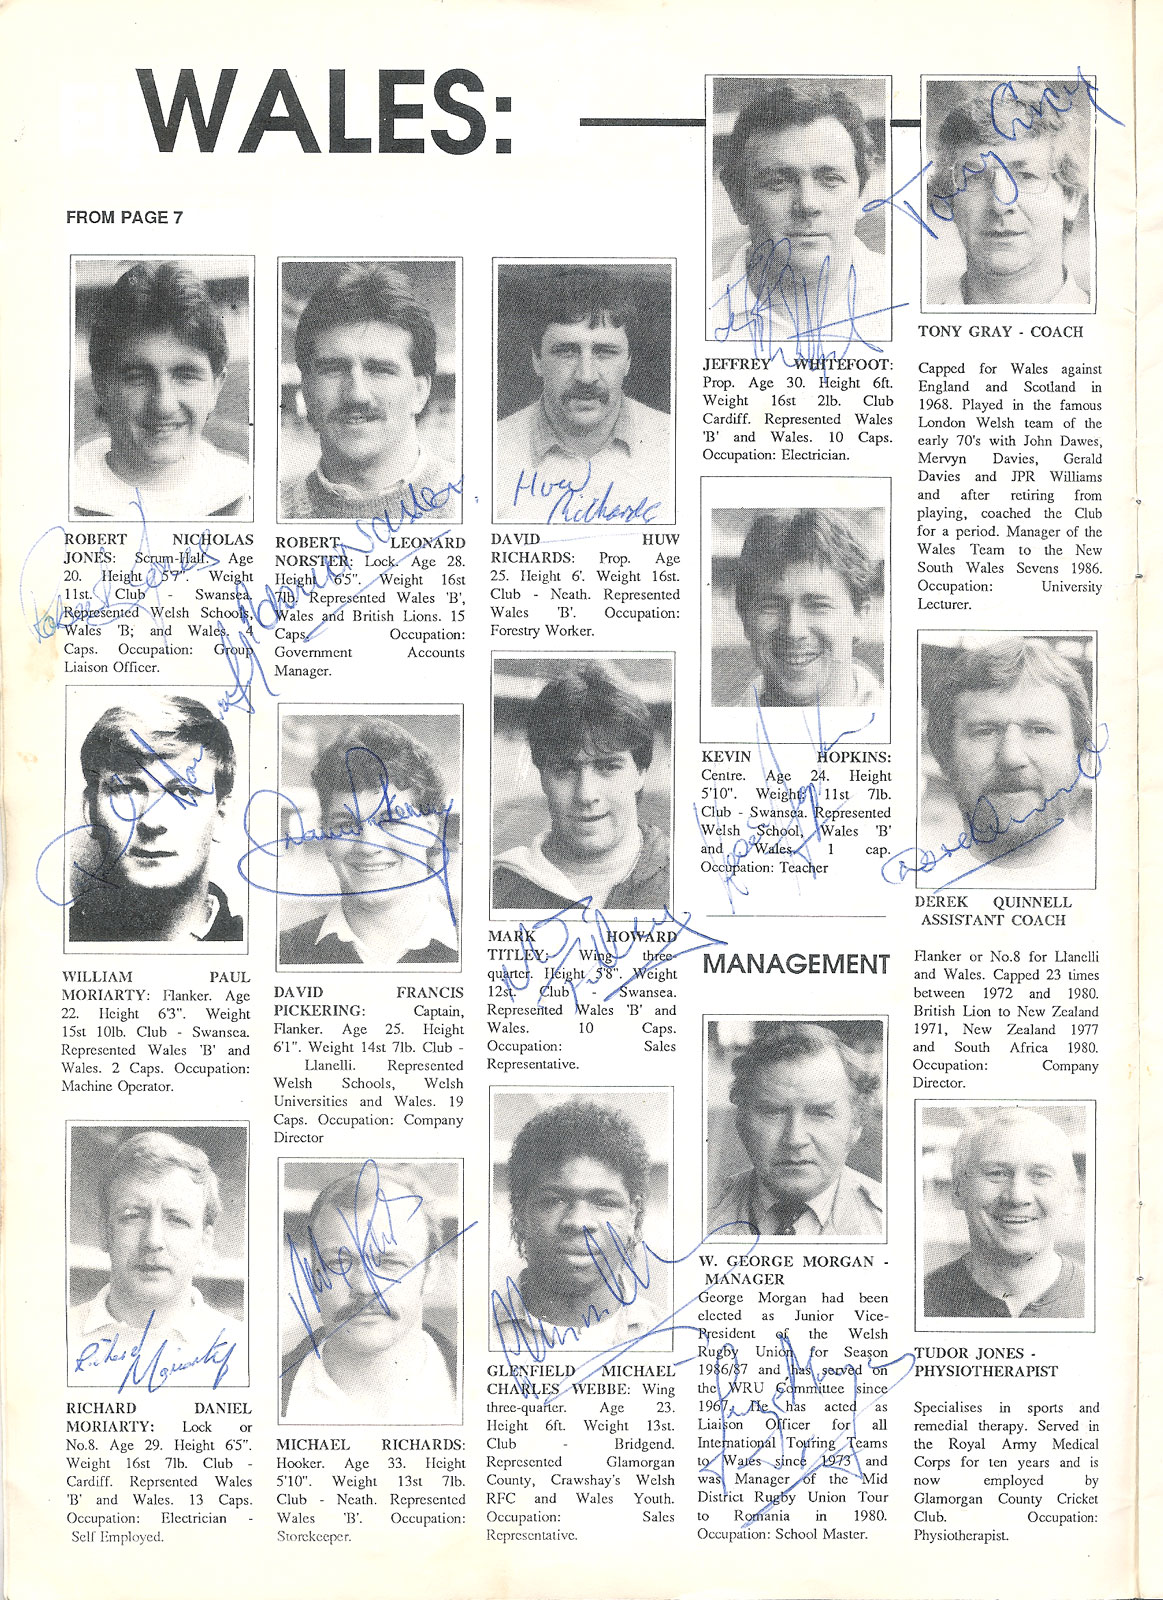 WALES:
FROM PAGE 7
ROBERT NICHOLAS
JONES: Scrum-Half. Age
20. Height 5'7". Weight
11st. Club - Swansea.
Represented Welsh Schools,
Wales 'B; and Wales. 4
Caps. Occupation: Group
Liaison Officer.
WILLIAM PAUL
MORIARTY: Flanker. Age
22. Height 6'3". Weight
15st 10lb. Club - Swansea.
Represented Wales 'B' and
Wales. 2 Caps. Occupation:
Machine Operator.
Richard
Moriarty
RICHARD DANIEL
MORIARTY: Lock or
No.8. Age 29. Height 6'5".
Weight 16st 7lb. Club -
Cardiff. Reprsented Wales
'B' and Wales. 13 Caps.
Occupation: Electrician -
Self Employed.
ROBERT LEONARD
NORSTER: Lock. Age 28.
Height 6'5". Weight 16st
7lb. Represented Wales 'B',
Wales and British Lions. 15
Caps. Occupation:
Government Accounts
Manager.
David Pickering
DAVID FRANCIS
PICKERING: Captain,
Flanker. Age 25. Height
6'1". Weight 14st 7lb. Club -
Llanelli. Represented
Welsh Schools, Welsh
Universities and Wales. 19
Caps. Occupation: Company
Director
MICHAEL RICHARDS:
Hooker. Age 33. Height
5'10". Weight 13st 7lb.
Club - Neath. Represented
Wales 'B'. Occupation:
Storekeeper.
Huw
Richards
DAVID HUW
RICHARDS: Prop. Age
25. Height 6'. Weight 16st.
Club - Neath. Represented
Wales 'B'. Occupation:
Forestry Worker.
MARK HOWARD
TITLEY: Wing three-
quarter. Height 5'8". Weight
12st. Club - Swansea.
Represented Wales 'B' and
Wales. 10 Caps.
Occupation: Sales
Representative.
GLENFIELD MICHAEL
CHARLES WEBBE: Wing
three-quarter. Age 23.
Height 6ft. Weight 13st.
Club - Bridgend.
Represented Glamorgan
County, Crawshay's Welsh
RFC and Wales Youth.
Occupation: Sales
Representative.
JEFFREY WHITEFOOT:
Prop. Age 30. Height 6ft.
Weight 16st 2lb. Club
Cardiff. Represented Wales
'B' and Wales. 10 Caps.
Occupation: Electrician.
KEVIN HOPKINS:
Centre. Age 24. Height
5'10". Weight: 11st 7lb.
Club - Swansea. Represented
Welsh School, Wales 'B'
and Wales. 1 cap.
Occupation: Teacher
MANAGEMENT
W. GEORGE MORGAN -
MANAGER
George Morgan had been
elected as Junior Vice-
President of the Welsh
Rugby Union for Season
1986/87 and has served on
the WRU Committee since
1967. He has acted as
Liaison Officer for all
International Touring Teams
to Wales since 1973 and
was Manager of the Mid
District Rugby Union Tour
to Romania in 1980.
Occupation: School Master.
Tony Gray
TONY GRAY - COACH
Capped for Wales against
England and Scotland in
1968. Played in the famous
London Welsh team of the
early 70's with John Dawes,
Mervyn Davies, Gerald
Davies and JPR Williams
and after retiring from
playing, coached the Club
for a period. Manager of the
Wales Team to the New
South Wales Sevens 1986.
Occupation: University
Lecturer.
Derek Quinnell
DEREK QUINNELL
ASSISTANT COACH
Flanker or No.8 for Llanelli
and Wales. Capped 23 times
between 1972 and 1980.
British Lion to New Zealand
1971, New Zealand 1977
and South Africa 1980.
Occupation: Company
Director.
TUDOR JONES -
PHYSIOTHERAPIST
Specialises in sports and
remedial therapy. Served in
the Royal Army Medical
Corps for ten years and is
now employed by
Glamorgan County Cricket
Club. Occupation:
Physiotherapist.